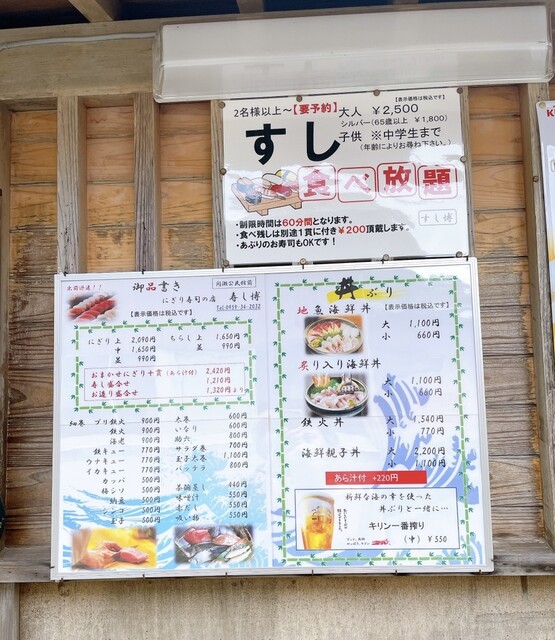 【表示価格は税込です】
2名様以上~【要予約】大人 ¥2,500
シルバー(65歳以上 ¥1,800)
すし
子供 ※中学生まで
(年齢によりお尋ね下さい。)
食べ放題
すし博
・制限時間は60分間となります。
・食べ残しは別途1貫に付き¥200頂戴します。
・あぶりのお寿司もOKです!
御品書き
にぎり寿司の店 寿し博
【表示価格は税込です】
にぎり 上 2,090円
中 1,650円
並 990円
ちらし 上 1,650円
並 990円
おまかせにぎり十貫(あら汁付) 2,420円
寿し盛合せ 1,210円
お造り盛合せ 1,320円より
細巻 ブリ鉄火 900円
鉄火 900円
海老 900円
鉄キュー 770円
ウナキュー 770円
イカキュー 770円
カッパ 500円
梅シソ 500円
納豆 500円
シンコ 500円
玉子 500円
太巻 600円
いなり 600円
助六 600円
サラダ巻 700円
玉子太巻 1,100円
バッテラ 800円
茶碗蒸し 440円
味噌汁 550円
赤だし 550円
吸い物 550円
丼ぶり
【表示価格は税込です】
地魚海鮮丼
大 1,100円
小 660円
炙り入り海鮮丼
大 1,100円
小 660円
鉄火丼
大 1,540円
小 770円
海鮮親子丼
大 2,200円
小 1,100円
あら汁付 +220円
新鮮な海の幸を使った
丼ぶりと一緒に…
キリン一番搾り
(中) ¥550